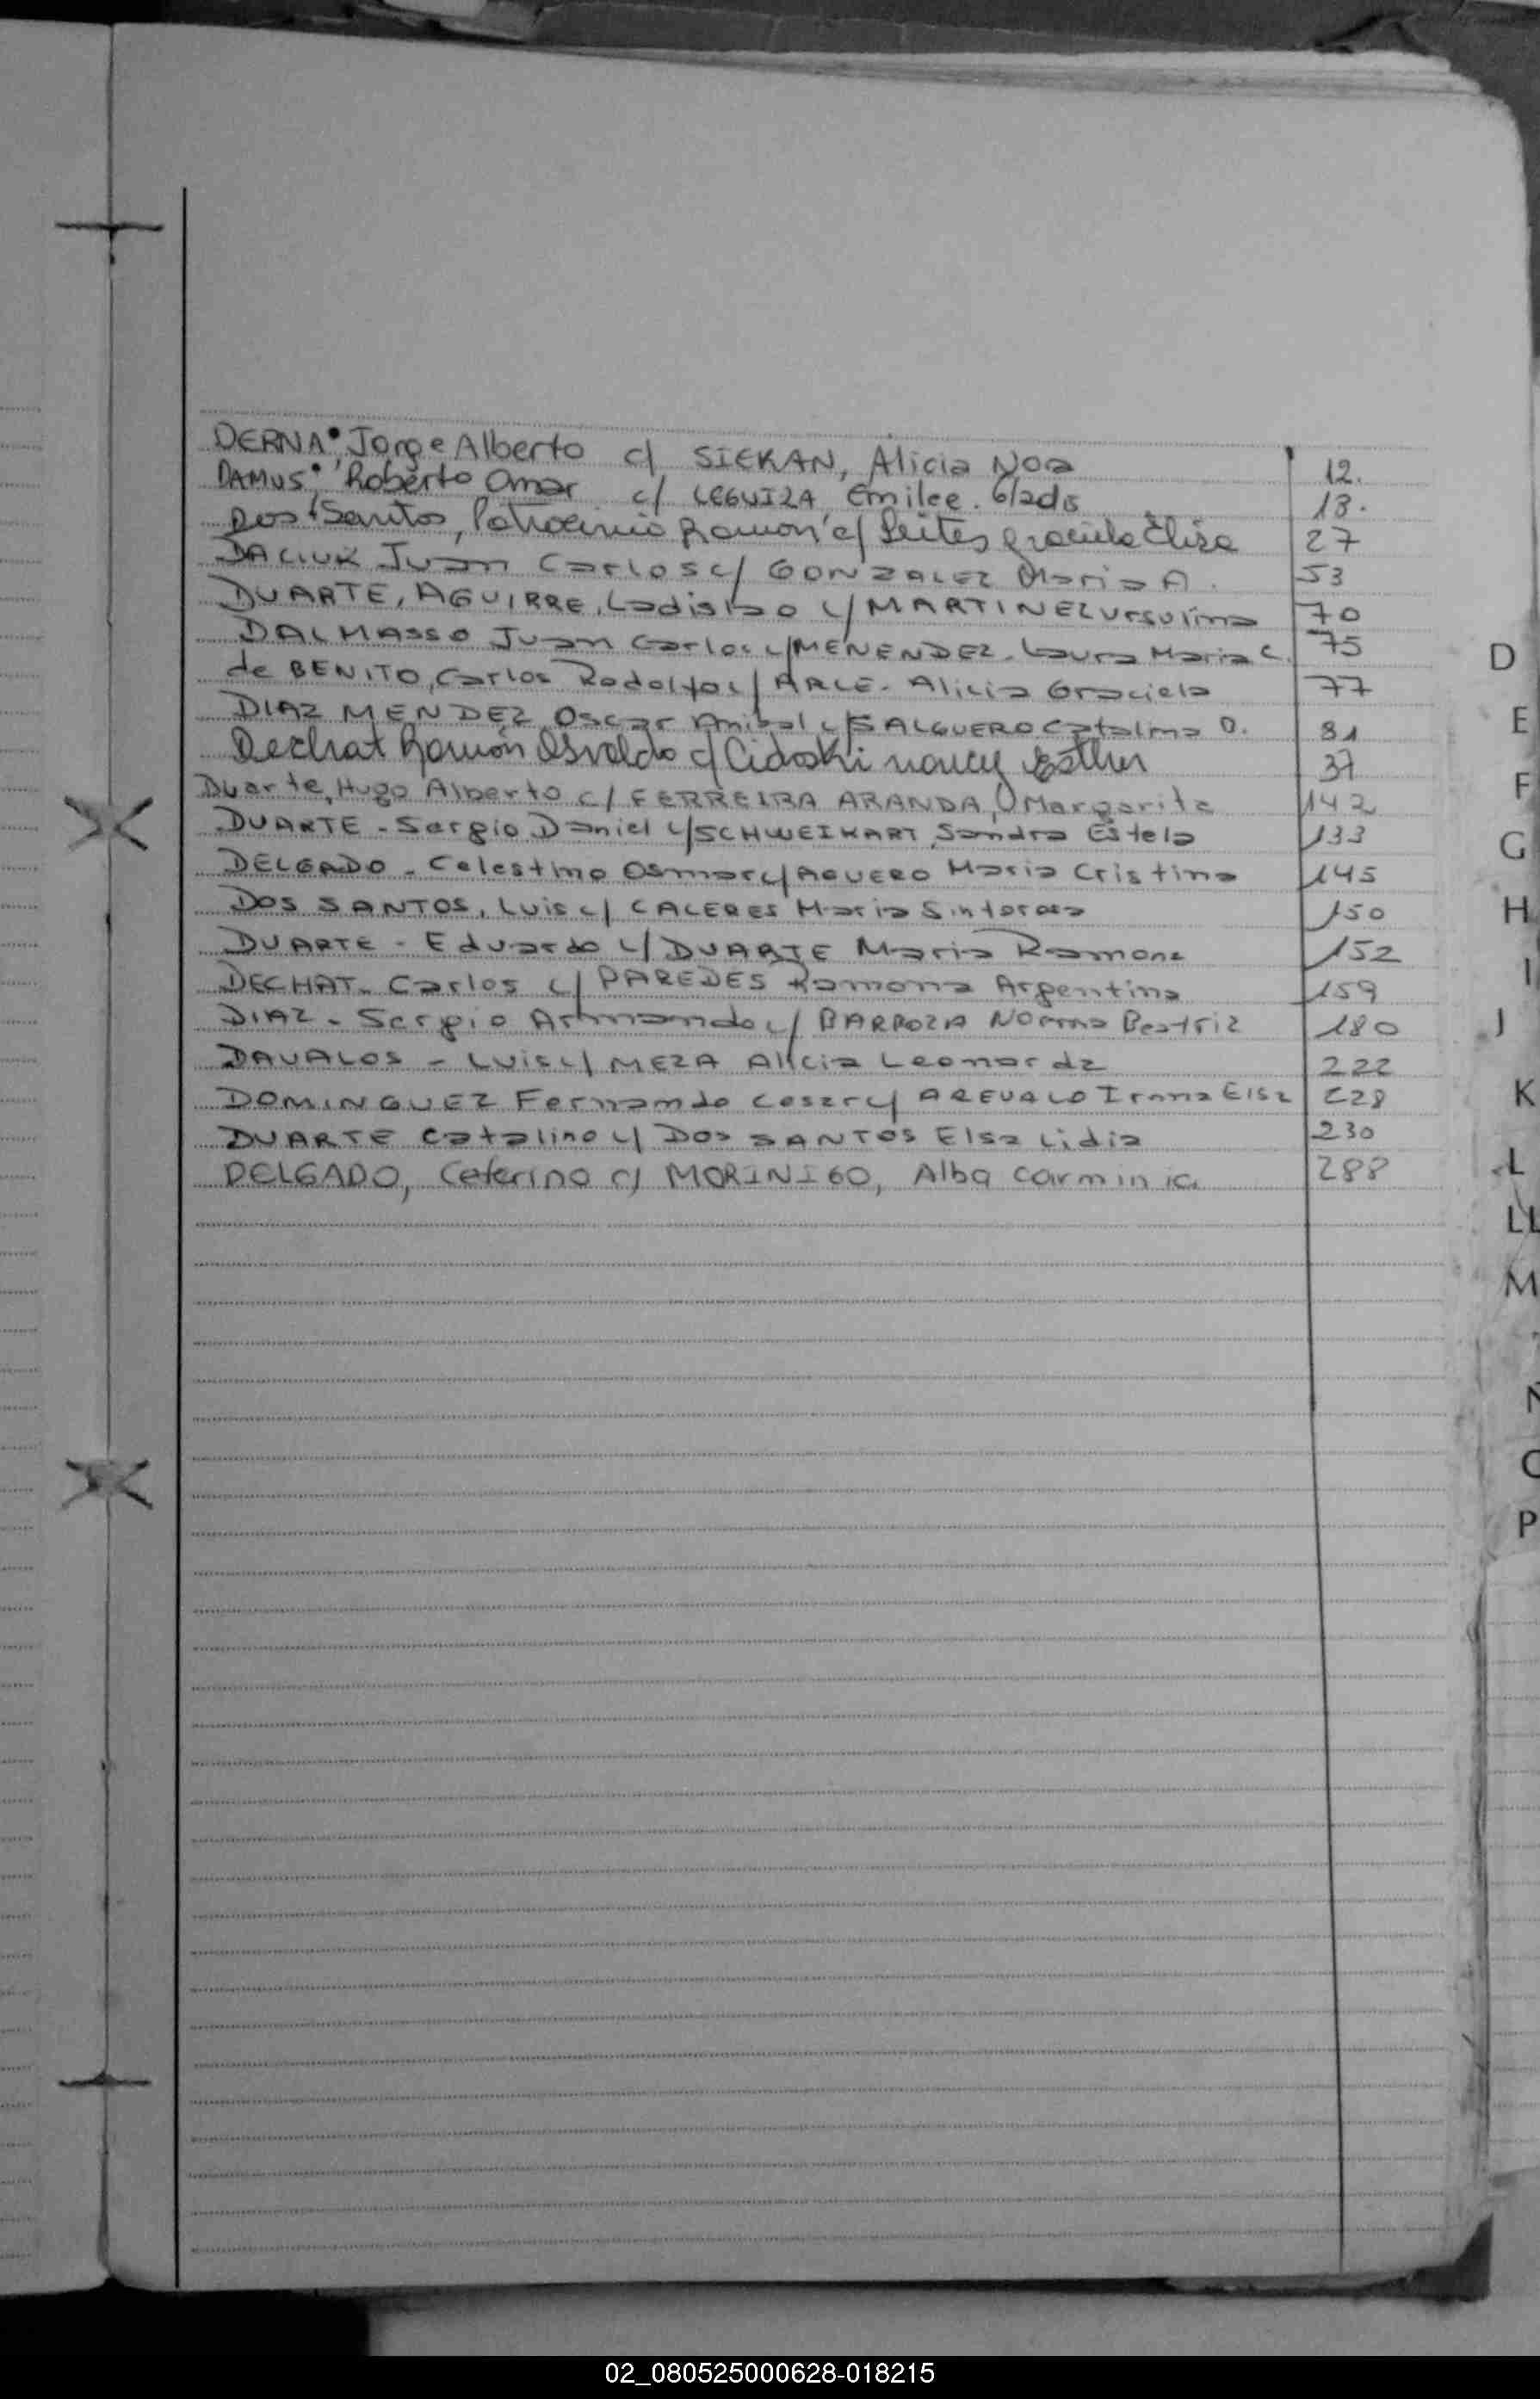 DERNA, Jorge Alberto c/ SIEKAN, Alicia Noa 12.
DAMUS, Roberto Omar c/ LEGUIZA, Emilce Gladis 13.
Dos Santos, Patrocinio Ramon c/ Leites graciela Elisa 27
DACIUK Juan Carlos c/ GONZALEZ Maria A. 53
DUARTE, AGUIRRE, Ladislao c/ MARTINEZ Ursulina 70
DALMASSO Juan Carlos c/ MENENDEZ - Laura Maria C. 75
de BENITO, Carlos Rodolfo c/ ARCE - Alicia Graciela 77
DIAZ MENDEZ Oscar Anibal c/ SALGUERO Catalina O. 81
Dechat Ramón Osvaldo c/ Cidoski nancy Esther 37
Duarte, Hugo Alberto c/ FERREIRA ARANDA, Margarita 142
DUARTE - Sergio Daniel c/ SCHWEIKART Sandra Estela 133
DELGADO - Celestino Osmar c/ AGUERO Maria Cristina 145
DOS SANTOS, Luis c/ CACERES Maria 150
DUARTE - Eduardo c/ DUARTE Maria Ramona 152
DECHAT - Carlos c/ PAREDES Ramona Argentina 159
DIAZ - Sergio Armando c/ BARBOZA Norma Beatriz 180
DAVALOS - Luis c/ MEZA Alicia Leonarda 222
DOMINGUEZ Fernando Cesar c/ AREVALO Irma Elsa 228
DUARTE Catalino c/ DOS SANTOS Elsa Lidia 230
DELGADO, Ceferino c/ MORINIGO, Alba carminia 288
D
E
F
G
H
I
J
K
L
LL
M
Ñ
O
P
02_080525000628-018215